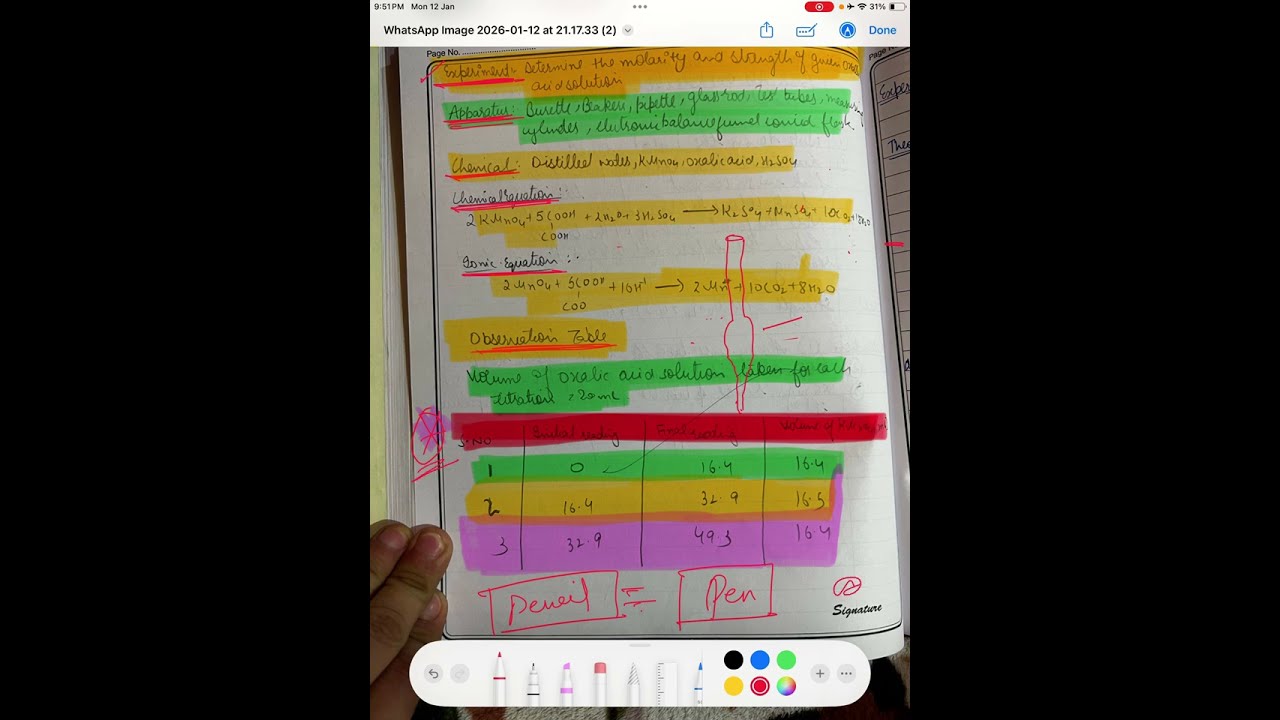 9:51 PM Mon 12 Jan
31%
WhatsApp Image 2026-01-12 at 21.17.33 (2)
Done
Page No.
Experiment:- Determine the molarity and strength of given oxalic
acid solution
Apparatus: Burette, Beakers, pipette, glass rod, Test tubes, measuring
cylinders, electronic balance funnel conical flask
Chemical: Distilled water, KMnO4, oxalic acid, H2SO4
Chemical Equation:-
2KMnO4 + 5COOH + 2H2O + 3H2SO4 → K2SO4 + MnSO4 + 10CO2 + 18H2O
COOH
Ionic Equation:-
2MnO4 + 5COOH + 16H+ → 2Mn + 10CO2 + 8H2O
COO
Observation Table
Volume of oxalic acid solution taken for each
titration = 20mL
S.NO Initial reading Final reading Volume of KMnO4
1 0 16.4 16.4
2 16.4 32.9 16.5
3 32.9 49.3 16.4
Pencil = Pen
Signature
Page No
Experi
Theo